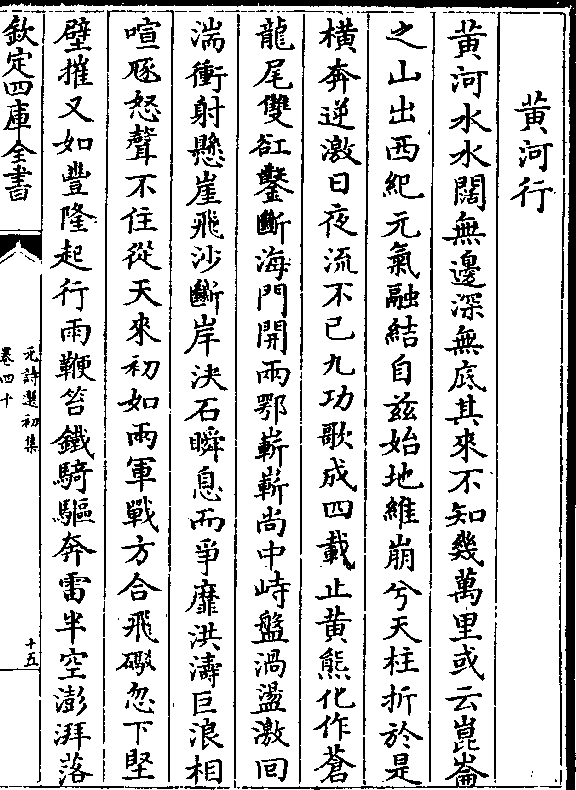 黄河行
黄河水水闊無邊深無底其來不知幾萬里或云崑崙
之山出西紀元氣融結自兹始地維崩兮天柱折於是
横奔逆激日夜流不已九功歌成四載止黄熊化作蒼
龍尾雙谹鑿斷海門開兩鄂嶄嶄尚中峙盤渦盪激回
湍衝射懸崖飛沙斷岸决石瞬息而爭靡洪濤巨浪相
喧豗怒聲不住從天來初如兩軍戰方合飛礮忽下堅
壁摧又如豐隆起行雨鞭笞鐵騎驅奔雷半空澎湃落
欽定四庫全書
元詩選初集
卷四十
十五